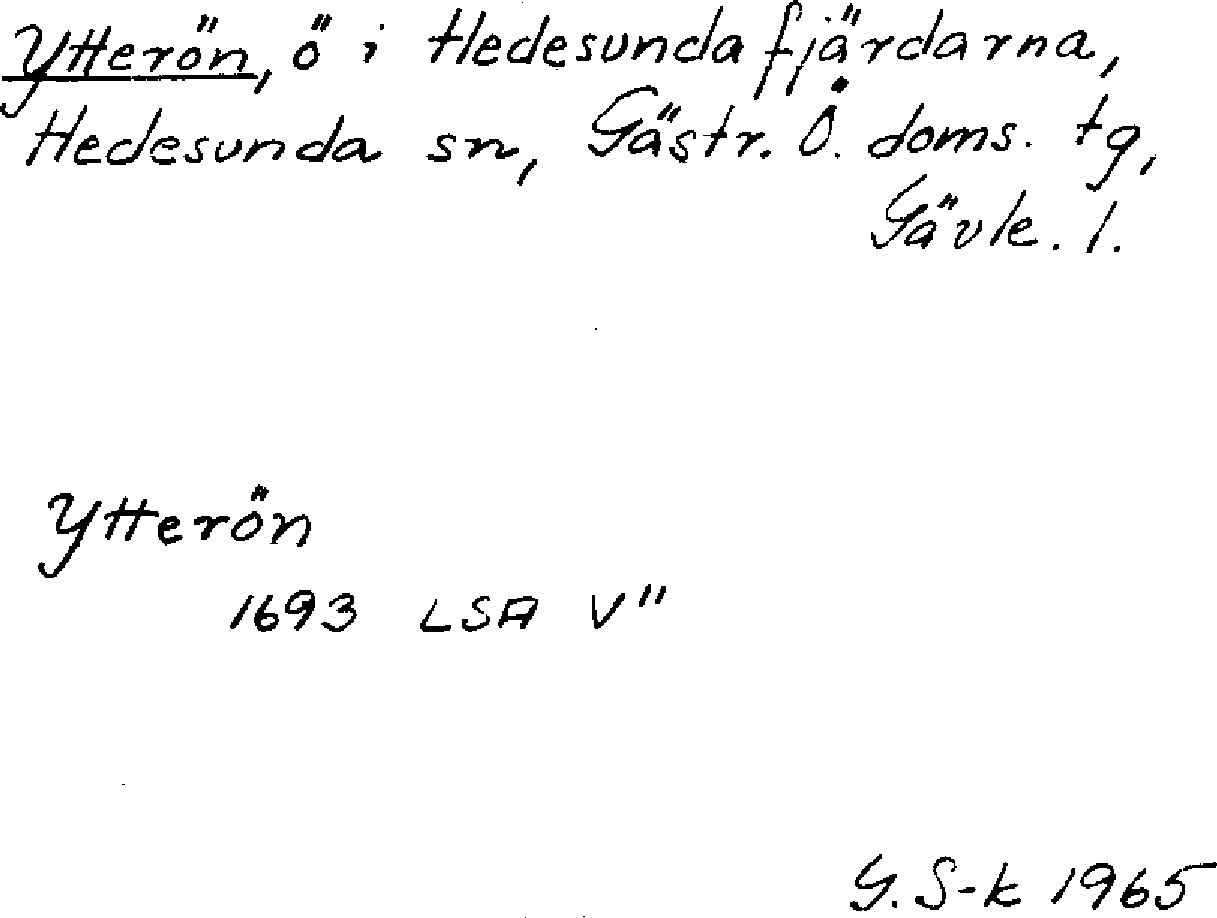 Ytterön, ö i Hedesundafjärdarna,
Hedesunda sn, Gästr. Ö. doms. tg,
Gävle. l.
Ytterön
1693 LSA V"
G. S-k 1965